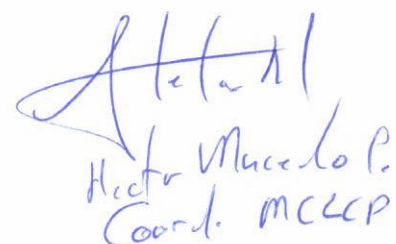 Hector Macedo P.
Coord. MCLCP